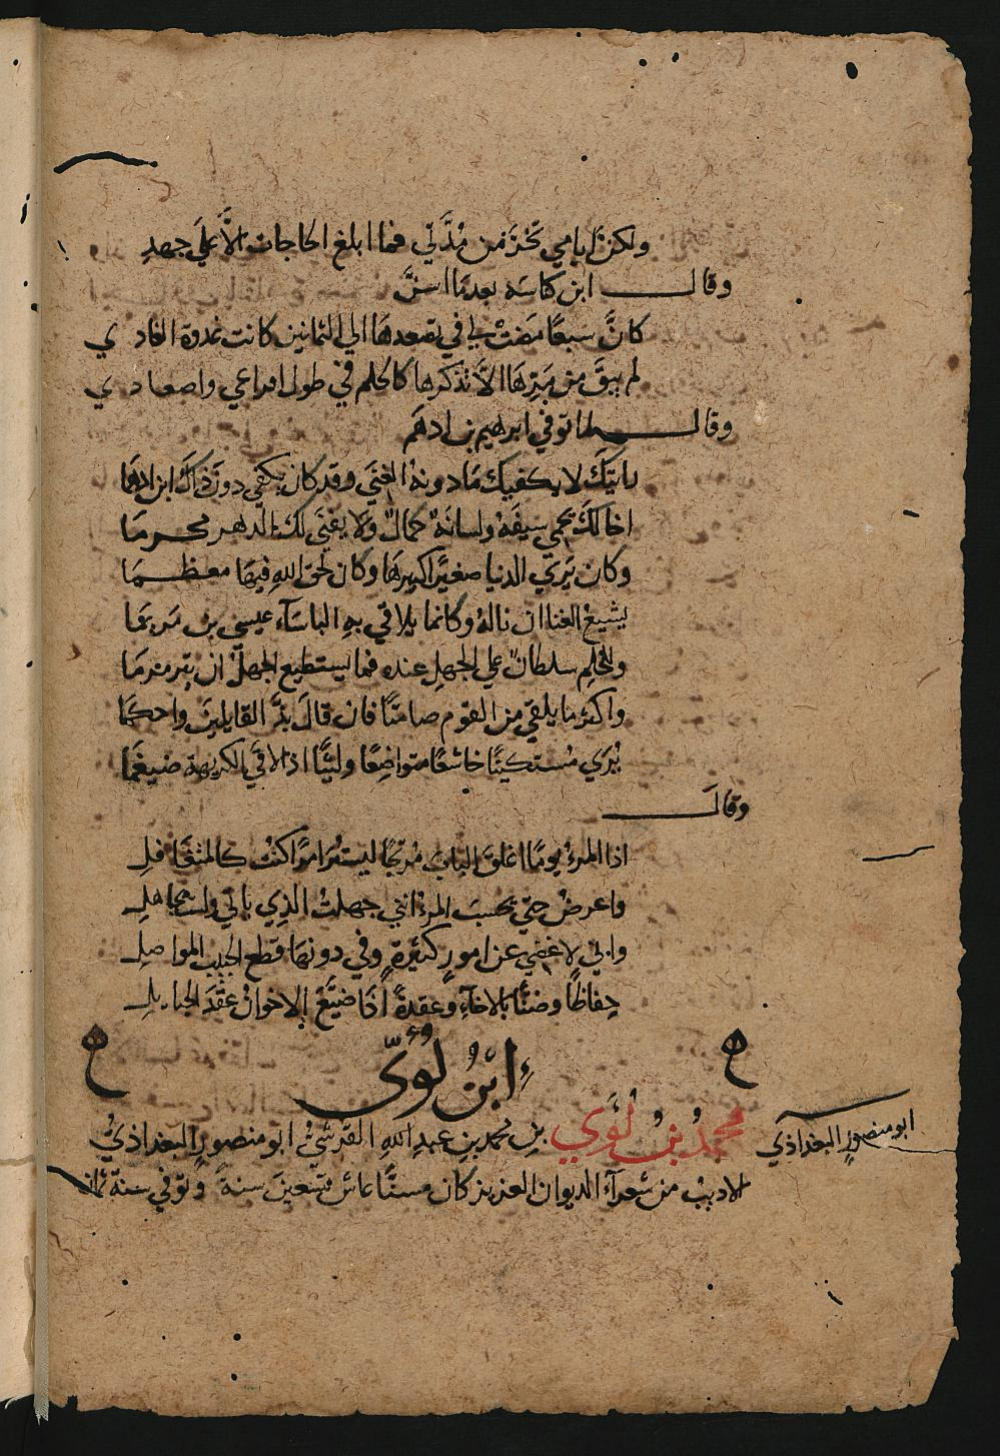 ولكن ايامي تخرمن مدتي فما ابلغ الحاجات الا علي جهد
وقال ابن كناسه بعدما اسن
كان سبعًا مضت لي في تصعدها الي الثمانين كانت غدوة الغادي
لم يبق من مرها الا تذكرها كالحلم في طول افراعي واصعادي
وقال لما توفي ابرهيم بن ادهم
رايتك لا يكفيك ما دونه الغني وقد كان يكفي دون ذاك ابن ادهما
اخا لك يحمي سيفه ولسانه حمال ولا يغني لك الدهر محرما
وكان يري الدنيا صغيرًا كبيرها وكان لحق الله فيها معظما
يشيع الغنا ان ناله وكانما يلاقي به الباسآء عيسي بن مريما
وللحلم سلطان علي الجهل عنده فما يستطيع الجهل ان يترمرما
واكثر ما يلقي من القوم صامتًا فان قال بذ القايلين واحكما
يُري مستكينًا خاشعًا متواضعًا وليثًا اذا لاقي الكريهة ضيغما
وقال
اذا المرء يومًا اغلق الباب مرتجًا ليستر امرًا كنت كالمتغافل
واعرض حتي يحسب المرء انني جهلت الذي ياتي ولست بجاهل
واني لاغضي عن امور كثيرة وفي دونها قطع الحبيب المواصل
حفاظًا وضنًا بالاخآء وعقدةً اذا ضيع الاخوان عقد الحبايل
ابن لؤيّ
محمد بن لؤي بن محمد بن عبد الله القرشي ابو منصور البغداذي
ابو منصور البغداذي
الاديب من شعرآء الديوان العزيز كان مسنًا عاش تسعين سنة وتوفي سنة ثمان